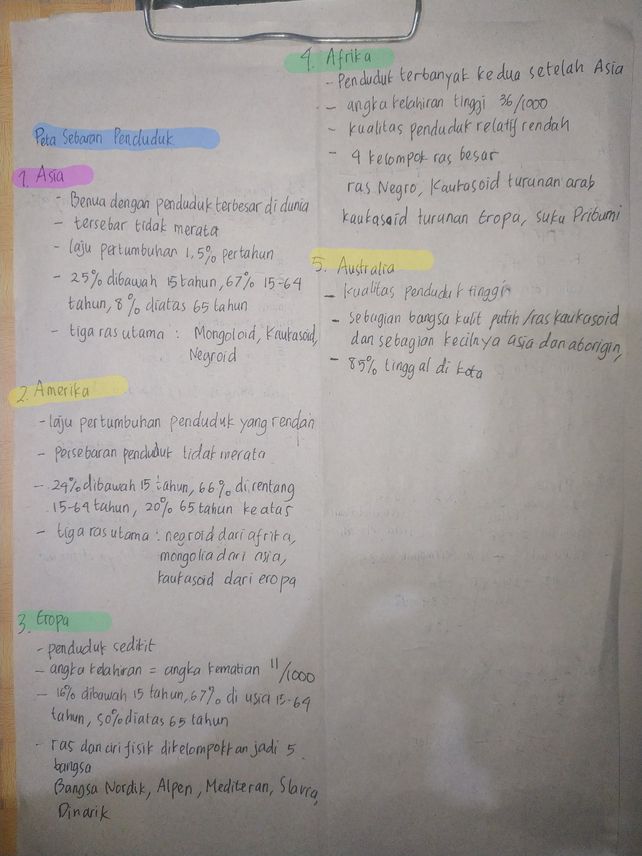 Peta Sebaran Penduduk
1. Asia
- Benua dengan penduduk terbesar di dunia
- tersebar tidak merata
- laju pertumbuhan 1,5% pertahun
- 25% dibawah 15 tahun, 67% 15-64
tahun, 8% diatas 65 tahun
- tiga ras utama : Mongoloid, Kaukasoid,
Negroid
2. Amerika
- laju pertumbuhan penduduk yang rendah
- Persebaran penduduk tidak merata
- 24% dibawah 15 tahun, 66% direntang
15-64 tahun, 20% 65 tahun keatas
- tiga ras utama : negroid dari afrika,
mongolia dari asia,
kaukasoid dari eropa
3. Eropa
- penduduk sedikit
- angka kelahiran = angka kematian 11/1000
- 16% dibawah 15 tahun, 67% di usia 15-64
tahun, 50% diatas 65 tahun
- ras dan ciri fisik dikelompokkan jadi 5
bangsa
Bangsa Nordik, Alpen, Mediteran, Slavia,
Dinarik
4. Afrika
- Penduduk terbanyak kedua setelah Asia
- angka kelahiran tinggi 36/1000
- kualitas penduduk relatif rendah
- 4 kelompok ras besar
ras Negro, Kaukasoid turunan arab
kaukasoid turunan Eropa, suku Pribumi
5. Australia
- kualitas penduduk tinggi
- sebagian bangsa kulit putih/ras kaukasoid
dan sebagian kecilnya asia dan aborigin,
- 85% tinggal di kota